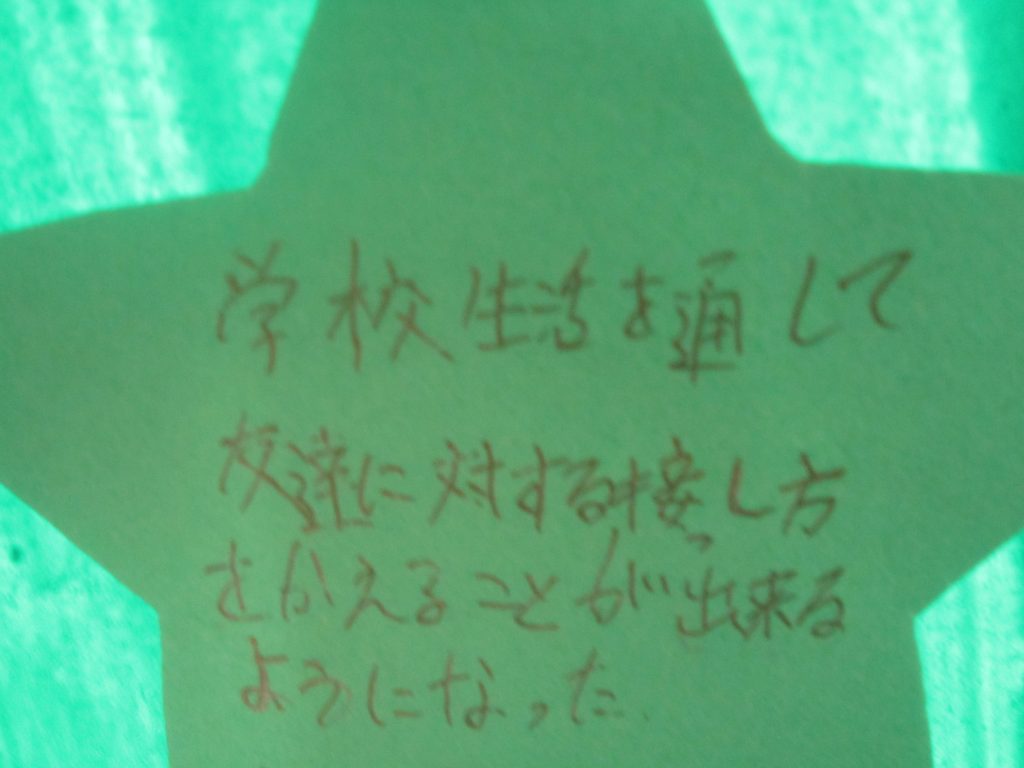 学校生活を通して
友達に対する接し方
をかえることが出来る
ようになった.